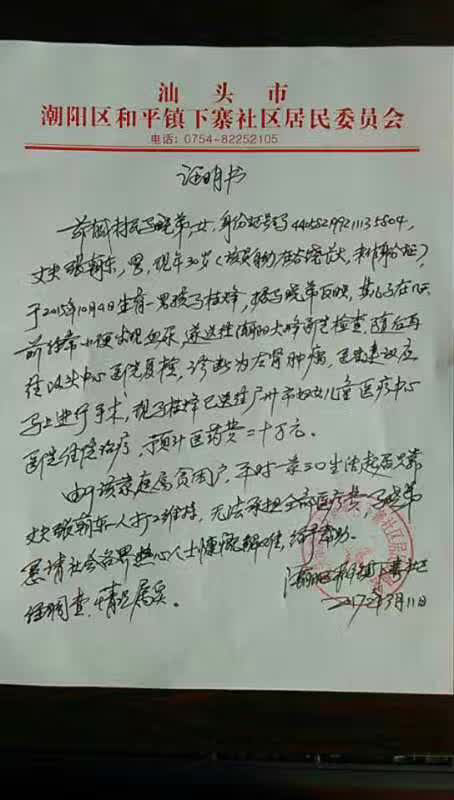 汕头市
潮阳区和平镇下寨社区居民委员会
电话：0754-82252105
证明书
兹有村民马晓弟，女，身份证号码
丈夫张朝东，男，现年30岁（该男自幼在长大，未有身份证），
于2015年10月4日生有一男孩马桂烽，据马晓弟反映，其儿子在几天
前经常小便出现血尿，遂送往潮阳大峰医院检查，随后再
往汕头中心医院复检，诊断为左肾肿瘤，医生建议应
马上进行手术，现马桂烽已送往广州市妇女儿童医疗中心
医院住院治疗，预计医药费二十万元。
由于该家庭属贫困户，平时一家三口生活起居只靠
丈夫张朝东一人打工维持，无法承担全部医疗费，马晓弟
恳请社会各界热心人士慷慨解难，给予帮助。
经调查，情况属实。
潮阳区和平镇下寨社区
2017年3月11日